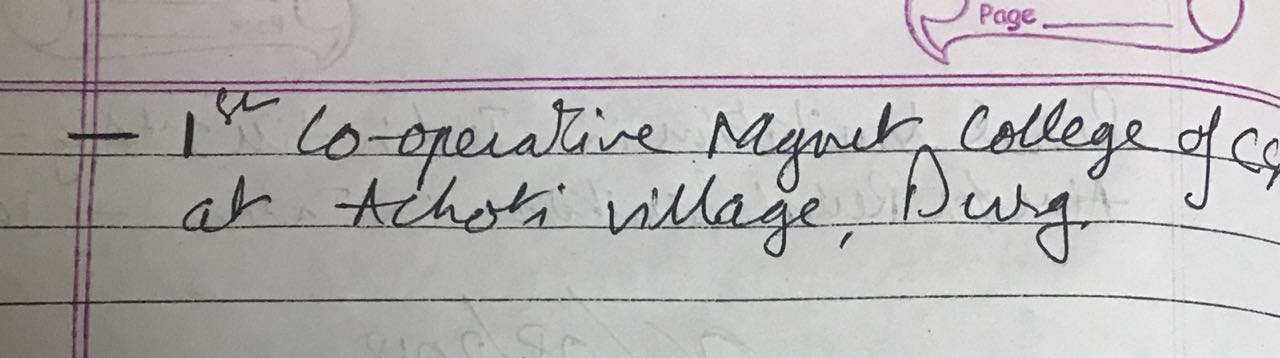 Page
- 1st Co-operative Mgmt College of CG
at Achoti village, Durg.